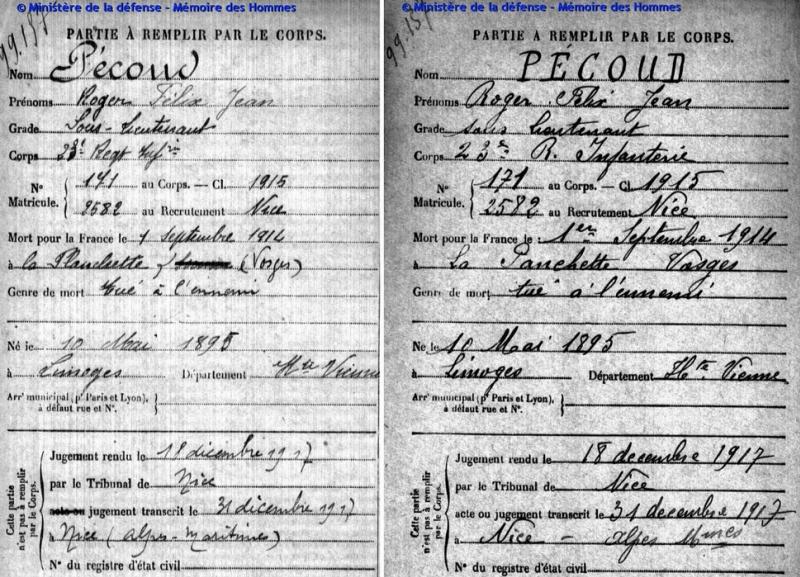 © Ministère de la défense - Mémoire des Hommes
99.157
PARTIE À REMPLIR PAR LE CORPS.
Nom Pécoud
Prénoms Roger Félix Jean
Grade Sous-Lieutenant
Corps 23e Regt Infrie
N° Matricule. { 171 au Corps. — Cl. 1915
2582 au Recrutement Nice
Mort pour la France le 1 septembre 1914
à la Planchette (Vosges)
Genre de mort Tué à l'ennemi
Né le 10 Mai 1895
à Limoges Département Hte Vienne
Arrt municipal (pr Paris et Lyon), à défaut rue et N°. }
Cette partie n'est pas à remplir par le Corps.
Jugement rendu le 18 décembre 1917
par le Tribunal de Nice
acte ou jugement transcrit le 31 décembre 1917
à Nice (Alpes-Maritimes)
N° du registre d'état civil
© Ministère de la défense - Mémoire des Hommes
99.157
PARTIE À REMPLIR PAR LE CORPS.
Nom PÉCOUD
Prénoms Roger Félix Jean
Grade sous Lieutenant
Corps 23e R. Infanterie
N° Matricule. { 171 au Corps. — Cl. 1915
2582 au Recrutement Nice
Mort pour la France le 1er Septembre 1914
à La Panchette Vosges
Genre de mort tué à l'ennemi
Né le 10 Mai 1895
à Limoges Département Hte Vienne
Arrt municipal (pr Paris et Lyon), à défaut rue et N°. }
Cette partie n'est pas à remplir par le Corps.
Jugement rendu le 18 decembre 1917
par le Tribunal de Nice
acte ou jugement transcrit le 31 decembre 1917
à Nice - Alpes Mmes
N° du registre d'état civil